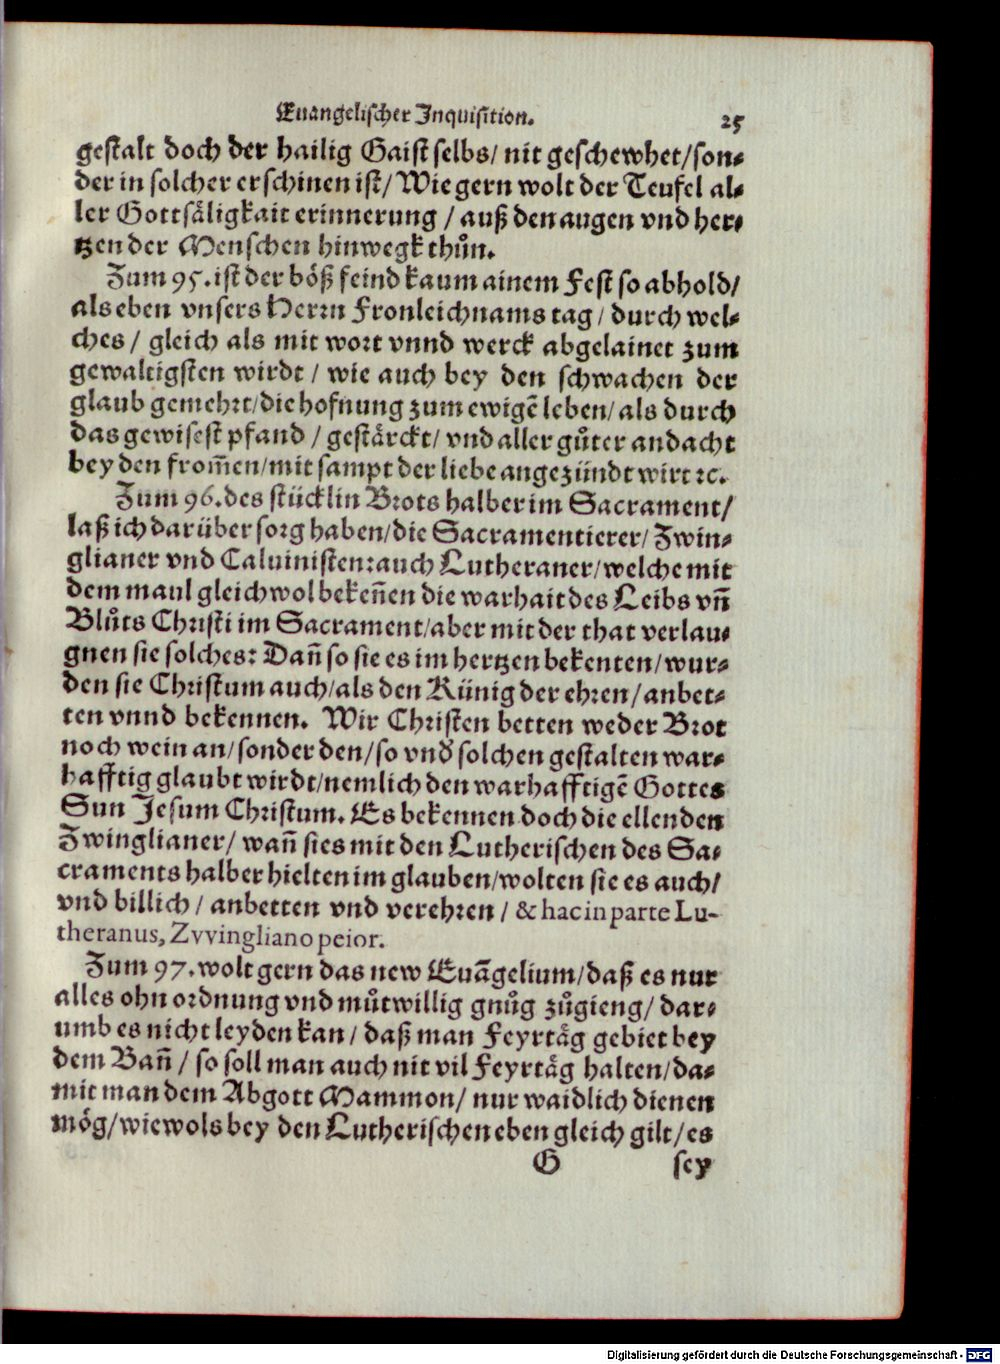 Euangelischer Inquisition. 25
gestalt doch der hailig Gaist selbs/ nit geschewhet/son⸗
der in solcher erschinen ist/ Wie gern wolt der Teufel al⸗
ler Gottsäligkait erinnerung / auß den augen vnd her⸗
tzen der Menschen hinwegk thůn.
Zum 95. ist der böß feind kaum ainem Fest so abhold/
als eben vnsers Herrn Fronleichnams tag / durch wel⸗
ches / gleich als mit wort vnnd werck abgelainet zum
gewaltigsten wirdt / wie auch bey den schwachen der
glaub gemehrt/die hofnung zum ewigē leben/ als durch
das gewisest pfand / gestärckt/ vnd aller gůter andacht
bey den from̄en/mit sampt der liebe angezündt wirt ꝛc.
Zum 96. des stücklin Brots halber im Sacrament/
laß ich darüber sorg haben/die Sacramentierer/ Zwin⸗
glianer vnd Caluinisten: auch Lutheraner/welche mit
dem maul gleichwol beken̄en die warhait des Leibs vn̄
Blůts Christi im Sacrament/aber mit der that verlau⸗
gnen sie solches: Dan̄ so sie es im hertzen bekenten/wur⸗
den sie Christum auch/als den Künig der ehren/ anbet⸗
ten vnnd bekennen. Wir Christen betten weder Brot
noch wein an/sonder den/so vnd̕ solchen gestalten war⸗
hafftig glaubt wirdt/nemlich den warhafftigē Gottes
Sun Jesum Christum. Es bekennen doch die ellenden
Zwinglianer/ wan̄ sies mit den Lutherischen des Sa⸗
craments halber hielten im glauben/wolten sie es auch/
vnd billich / anbetten vnd verehren / & hac in parte Lu-
theranus, Zvvingliano peior.
Zum 97. wolt gern das new Euāgelium/daß es nur
alles ohn ordnung vnd můtwillig gnůg zůgieng/ dar⸗
umb es nicht leyden kan/ daß man Feyrtäg gebiet bey
dem Ban̄ / so soll man auch nit vil Feyrtäg halten/da⸗
mit man dem Abgott Mammon/ nur waidlich dienen
mög/wiewols bey den Lutherischen eben gleich gilt/es
G sey
Digitalisierung gefördert durch die Deutsche Forschungsgemeinschaft - DFG